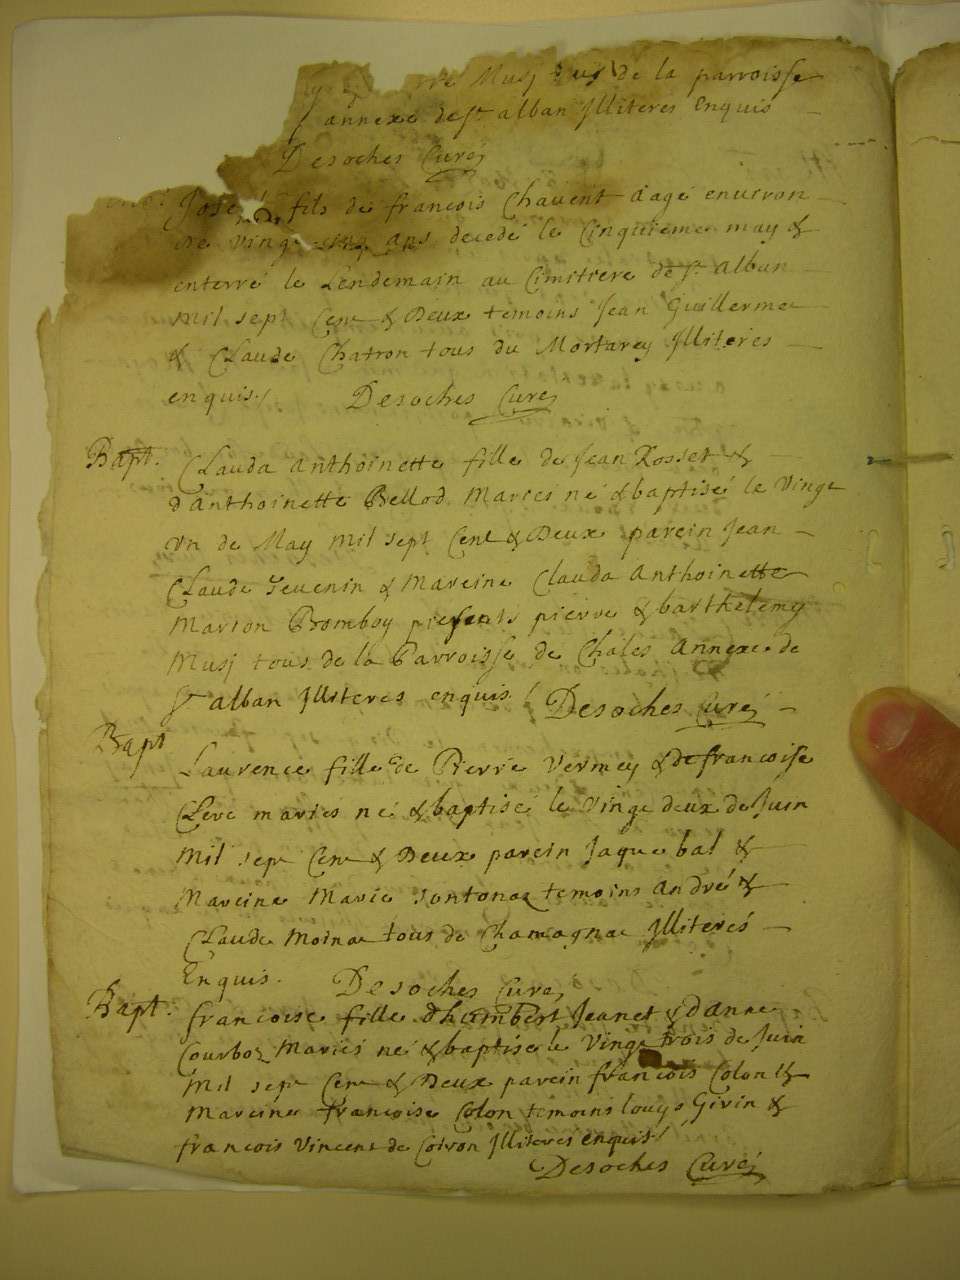 Musj de la parroisse
annexe de st alban Jlliteres Enquis
Desoches Curé
fils de francois Chauent aagé enuiron
de Vingt ans decedé le Cinquieme may &
enterré le Lendemain au Cimitiere de st Alban
Mil sept Cent & Deux temoins Jean Guillermet
& Claude Chatron tous du Mortarey Jlliteres
enquis./ Desoches Curé
Bapt. Clauda Anthoinette fille de Jean Rosset &
d'Anthoinette Bellod Mariés né & baptisé le Vingt
Vn de May Mil sept Cent & Deux parein Jean
Claude Teuenin & Mareine Clauda Anthoinette
Marion Bomboy presents pierre & barthelemy
Musj tous de la Parroisse de Chales Annexe de
st alban Jlliteres enquis./ Desoches Curé
Bapt Laurence fille de Pierre Vermey & de francoise
Cleve mariés né & baptisé le Vingt deux de Juin
Mil sept Cent & Deux parein Jaque bal &
Mareine Marie temoins André &
Claude Moine tous de Chamagnac Jlliterés
Enquis. Desoches Curé
Bapt. francoise fille d'humbert Jeanet & d'anne
Courboz Mariés né & baptisé le Vingt trois de Juin
Mil sept Cent & Deux parein francois Colon &
Mareine francoise Colon temoins louys Givin &
francois Vincent de Coiron Jlliteres enquis/
Desoches Curé